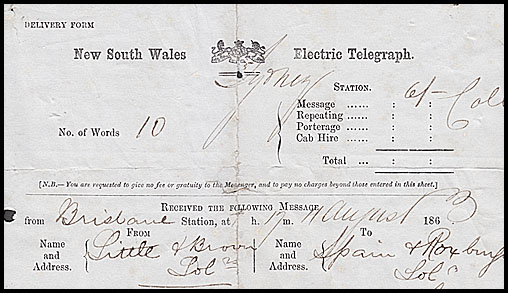 DELIVERY FORM
New South Wales Electric Telegraph.
Sydney STATION.
Message ...... : :
Repeating ...... : :
No. of Words 10 Porterage ...... : :
Cab Hire ...... : :
Total ... : :
[N.B.—You are requested to give no fee or gratuity to the Messenger, and to pay no charges beyond those entered in this sheet.]
RECEIVED THE FOLLOWING MESSAGE
from Brisbane Station, at h. m. August 1863
FROM TO
Name and Address. Little & Brown Name and Address. Spain & Roxburg
Solrs Solr